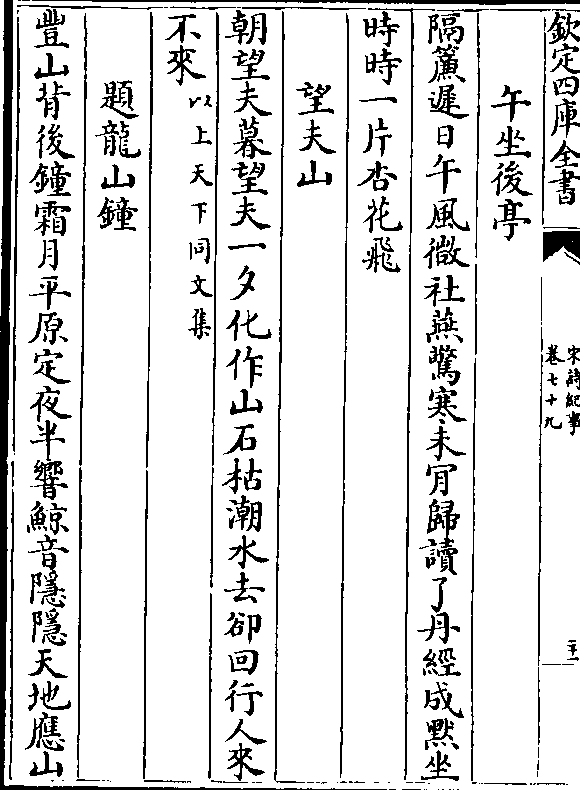 欽定四庫全書
宋詩紀事
卷七十九
二十一
午坐後亭
隔簾遲日午風微社燕驚寒未肎歸讀了丹經成黙坐
時時一片杏花飛
望夫山
朝望夫暮望夫一夕化作山石枯潮水去卻回行人來
不來以上天下同文集
題龍山鐘
豐山背後鐘霜月平原定夜半響鯨音隱隱天地應山